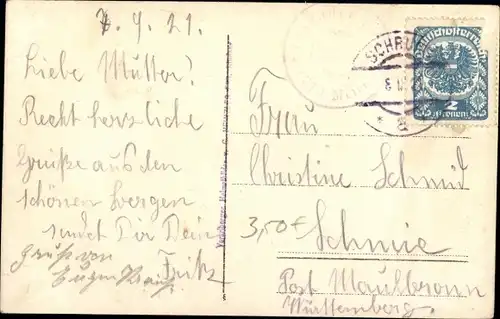 7. 9. 21.
Liebe Mutter!
Recht herzliche
Grüße aus den
schönen Bergen
sendet Dir Dein
Fritz
Gruß von
Eugen
Frau
Christine Schmid
Schmie
Post Maulbronn
Württemberg.
3,50€
SCHRU
Deutschösterreich
2
Kronen